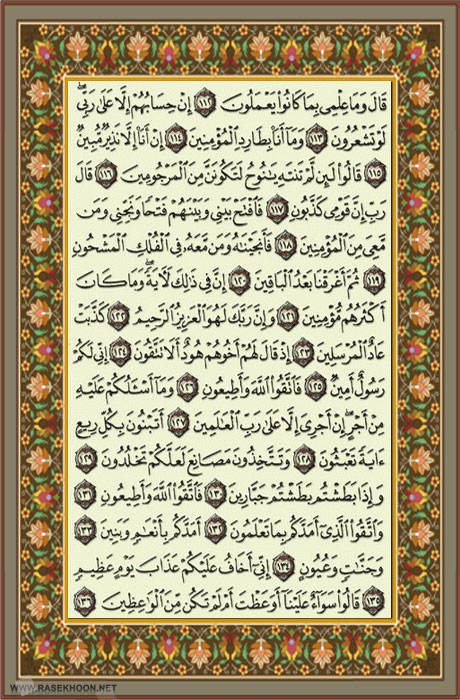 قَالَ وَمَا عِلْمِى بِمَا كَانُوا۟ يَعْمَلُونَ ١١٢ إِنْ حِسَابُهُمْ إِلَّا عَلَىٰ رَبِّى ۖ
لَوْ تَشْعُرُونَ ١١٣ وَمَآ أَنَا۠ بِطَارِدِ الْمُؤْمِنِينَ ١١٤ إِنْ أَنَا۠ إِلَّا نَذِيرٌ مُّبِينٌ
١١٥ قَالُوا۟ لَئِن لَّمْ تَنتَهِ يَٰنُوحُ لَتَكُونَنَّ مِنَ الْمَرْجُومِينَ ١١٦ قَالَ
رَبِّ إِنَّ قَوْمِى كَذَّبُونِ ١١٧ فَافْتَحْ بَيْنِى وَبَيْنَهُمْ فَتْحًا وَنَجِّنِى وَمَن
مَّعِىَ مِنَ الْمُؤْمِنِينَ ١١٨ فَأَنجَيْنَٰهُ وَمَن مَّعَهُۥ فِى الْفُلْكِ الْمَشْحُونِ
١١٩ ثُمَّ أَغْرَقْنَا بَعْدُ الْبَاقِينَ ١٢٠ إِنَّ فِى ذَٰلِكَ لَءَايَةً ۖ وَمَا كَانَ
أَكْثَرُهُم مُّؤْمِنِينَ ١٢١ وَإِنَّ رَبَّكَ لَهُوَ الْعَزِيزُ الرَّحِيمُ ١٢٢ كَذَّبَتْ
عَادٌ الْمُرْسَلِينَ ١٢٣ إِذْ قَالَ لَهُمْ أَخُوهُمْ هُودٌ أَلَا تَتَّقُونَ ١٢٤ إِنِّى لَكُمْ
رَسُولٌ أَمِينٌ ١٢٥ فَاتَّقُوا۟ اللَّهَ وَأَطِيعُونِ ١٢٦ وَمَآ أَسْـَٔلُكُمْ عَلَيْهِ
مِنْ أَجْرٍ ۖ إِنْ أَجْرِىَ إِلَّا عَلَىٰ رَبِّ الْعَٰلَمِينَ ١٢٧ أَتَبْنُونَ بِكُلِّ رِيعٍ
ءَايَةً تَعْبَثُونَ ١٢٨ وَتَتَّخِذُونَ مَصَانِعَ لَعَلَّكُمْ تَخْلُدُونَ ١٢٩
وَإِذَا بَطَشْتُم بَطَشْتُمْ جَبَّارِينَ ١٣٠ فَاتَّقُوا۟ اللَّهَ وَأَطِيعُونِ ١٣١
وَاتَّقُوا۟ الَّذِىٓ أَمَدَّكُم بِمَا تَعْلَمُونَ ١٣٢ أَمَدَّكُم بِأَنْعَٰمٍ وَبَنِينَ ١٣٣
وَجَنَّٰتٍ وَعُيُونٍ ١٣٤ إِنِّىٓ أَخَافُ عَلَيْكُمْ عَذَابَ يَوْمٍ عَظِيمٍ
١٣٥ قَالُوا۟ سَوَآءٌ عَلَيْنَآ أَوَعَظْتَ أَمْ لَمْ تَكُن مِّنَ الْوَٰعِظِينَ ١٣٦
WWW.RASEKHOON.NET